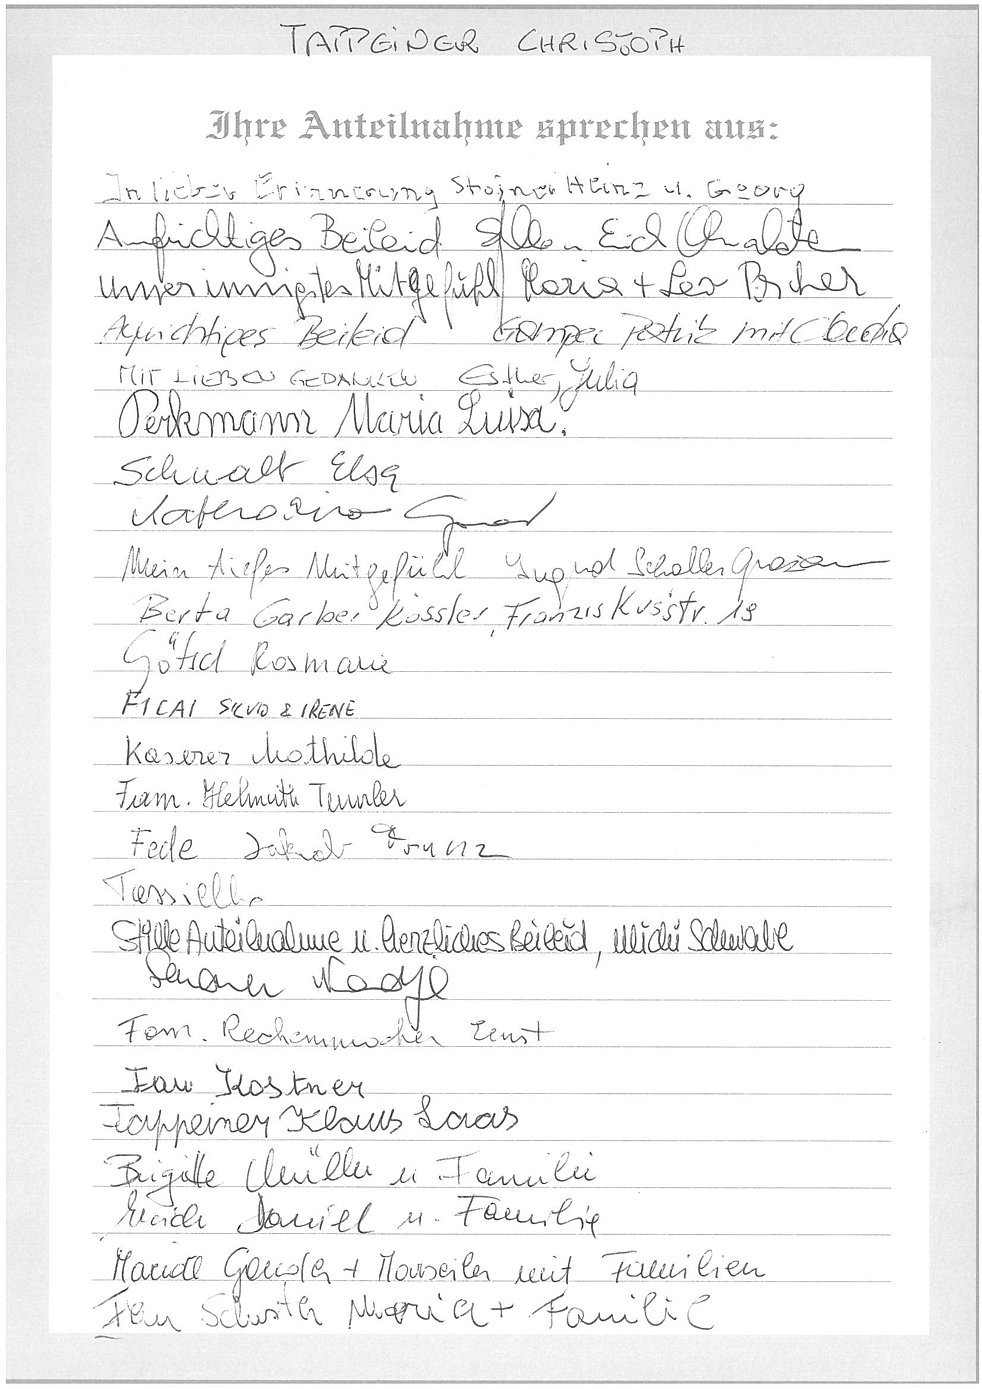 TAPPEINER CHRISTOPH
Ihre Anteilnahme sprechen aus:
In lieber Erinnerung Stainer Heinz u. Georg
Aufrichtiges Beileid
Unser innigstes Mitgefühl Maria + Leo Pircher
Aufrichtiges Beileid Gamper Patrik mit Claudia
MIT LIEBEN GEDANKEN Esther, Julia
Perkmann Maria Luisa.
Schwalt Elsa
Katharina
Mein tiefes Mitgefühl Ingrid Schaller
Berta Garber Kössler, Franziskusstr. 19
Götsch Rosmarie
FICAI SILVIO & IRENE
Kaserer Mathilde
Fam. Helmuth Tumler
Fede Jakob Franz
Tassiello
Stille Anteilnahme u. herzliches Beileid, Michi Schwabe
Fam. Rechenmacher Ernst
Fam Kostner
Tappeiner Klaus Laas
Brigitte Müller u Familie
Daniel u. Familie
mit Familien
Fam Schuster Maria + Familie